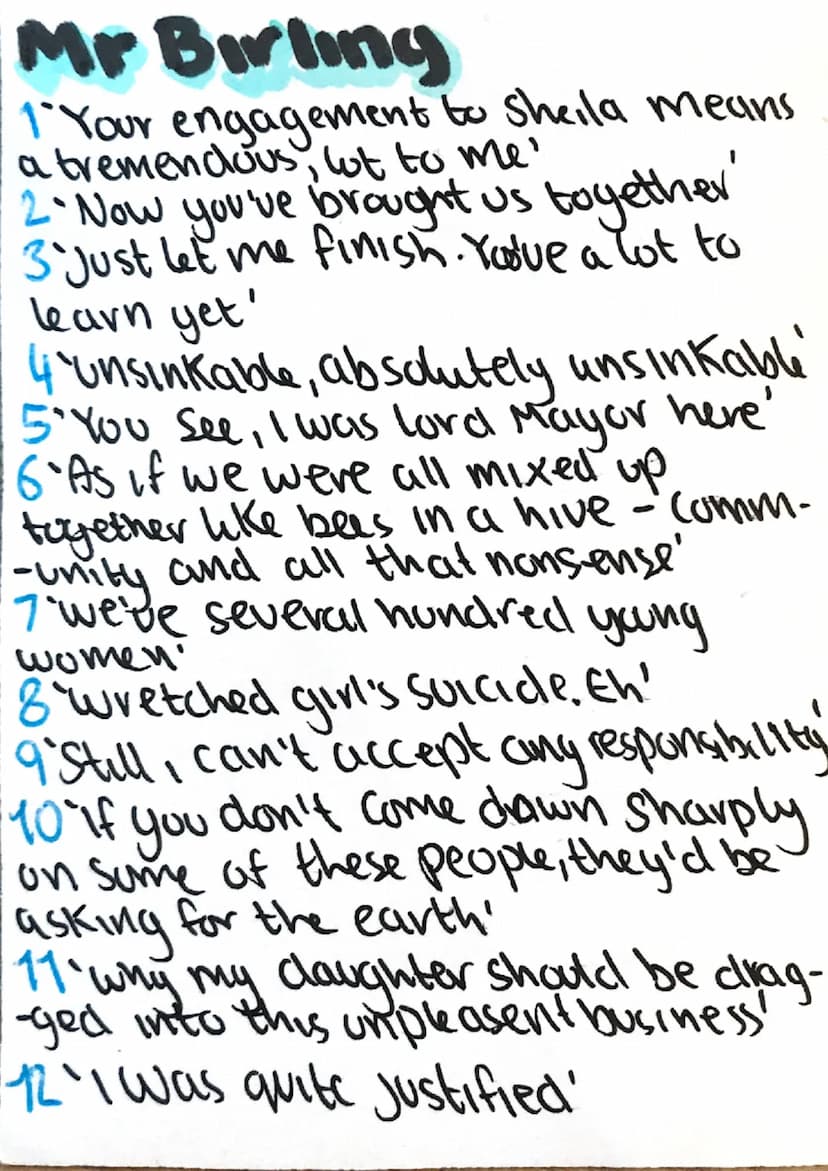 Mr Birling
1 'Your engagement to Sheila means
a tremendous, lot to me'
2 'Now you've brought us together'
3 'Just let me finish. You've a lot to
learn yet'
4 'unsinkable, absolutely unsinkable'
5 'You see, I was lord Mayor here'
6 'As if we were all mixed up
together like bees in a hive - comm-
-unity and all that nonsense'
7 'we've several hundred young
women'
8 'wretched girl's suicide. Eh'
9 'Still, I can't accept any responsibility'
10 'If you don't come down sharply
on some of these people, they'd be
asking for the earth'
11 'why my daughter should be drag-
-ged into this unpleasent business'
12 'I was quite justified'